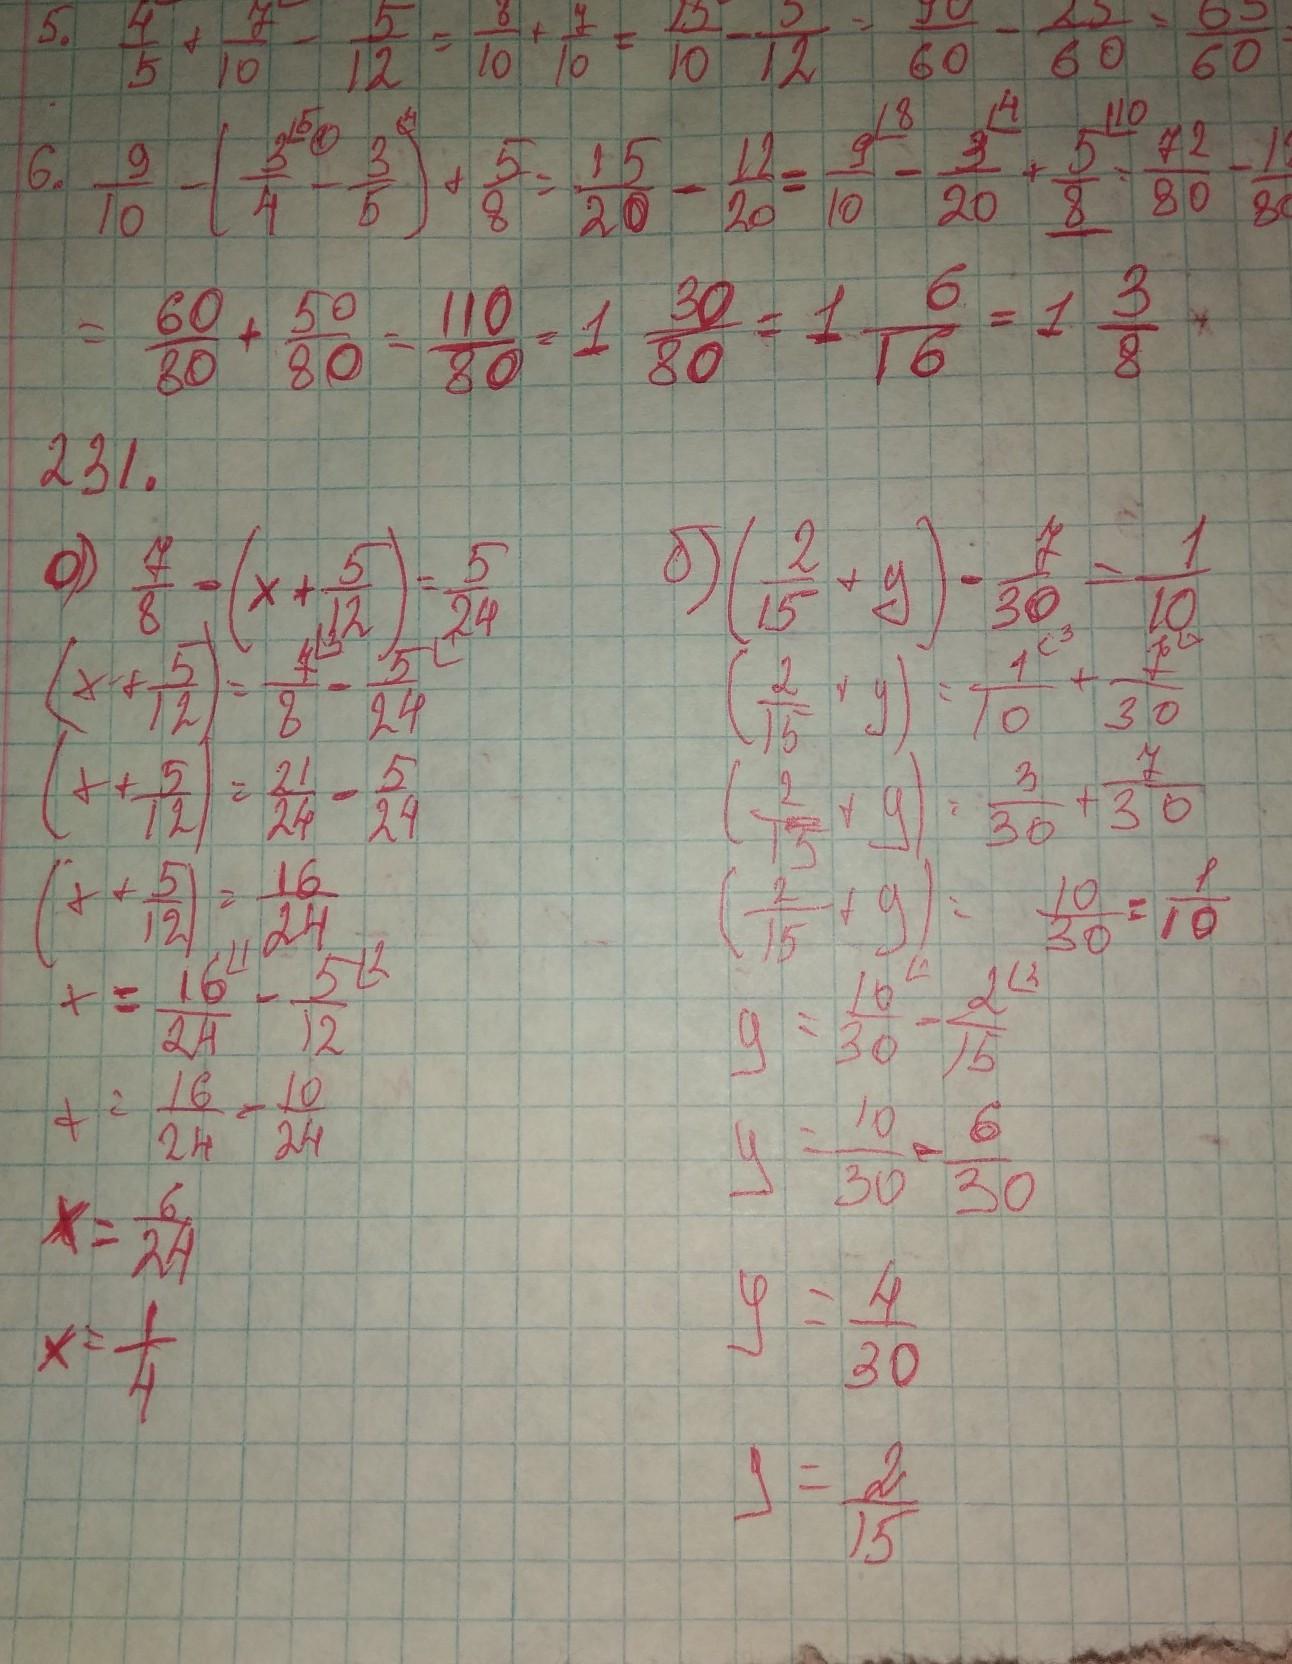 5. 4/5 + 7/10 - 5/12 = 8/10 + 7/10 = 15/10 - 5/12 = 90/60 - 25/60 = 65/60 =
6. 9/10 - (3/4 - 3/5) + 5/8 = 15/20 - 12/20 = 9/10 - 3/20 + 5/8 = 72/80 - 12/80
= 60/80 + 50/80 = 110/80 = 1 30/80 = 1 6/16 = 1 3/8
231.
а) 7/8 - (x + 5/12) = 5/24
(x + 5/12) = 7/8 - 5/24
(x + 5/12) = 21/24 - 5/24
(x + 5/12) = 16/24
x = 16/24 - 5/12
x = 16/24 - 10/24
x = 6/24
x = 1/4
б) (2/15 + y) - 7/30 = 1/10
(2/15 + y) = 1/10 + 7/30
(2/15 + y) = 3/30 + 7/30
(2/15 + y) = 10/30 = 1/10
y = 10/30 - 2/15
y = 10/30 - 6/30
y = 4/30
y = 2/15